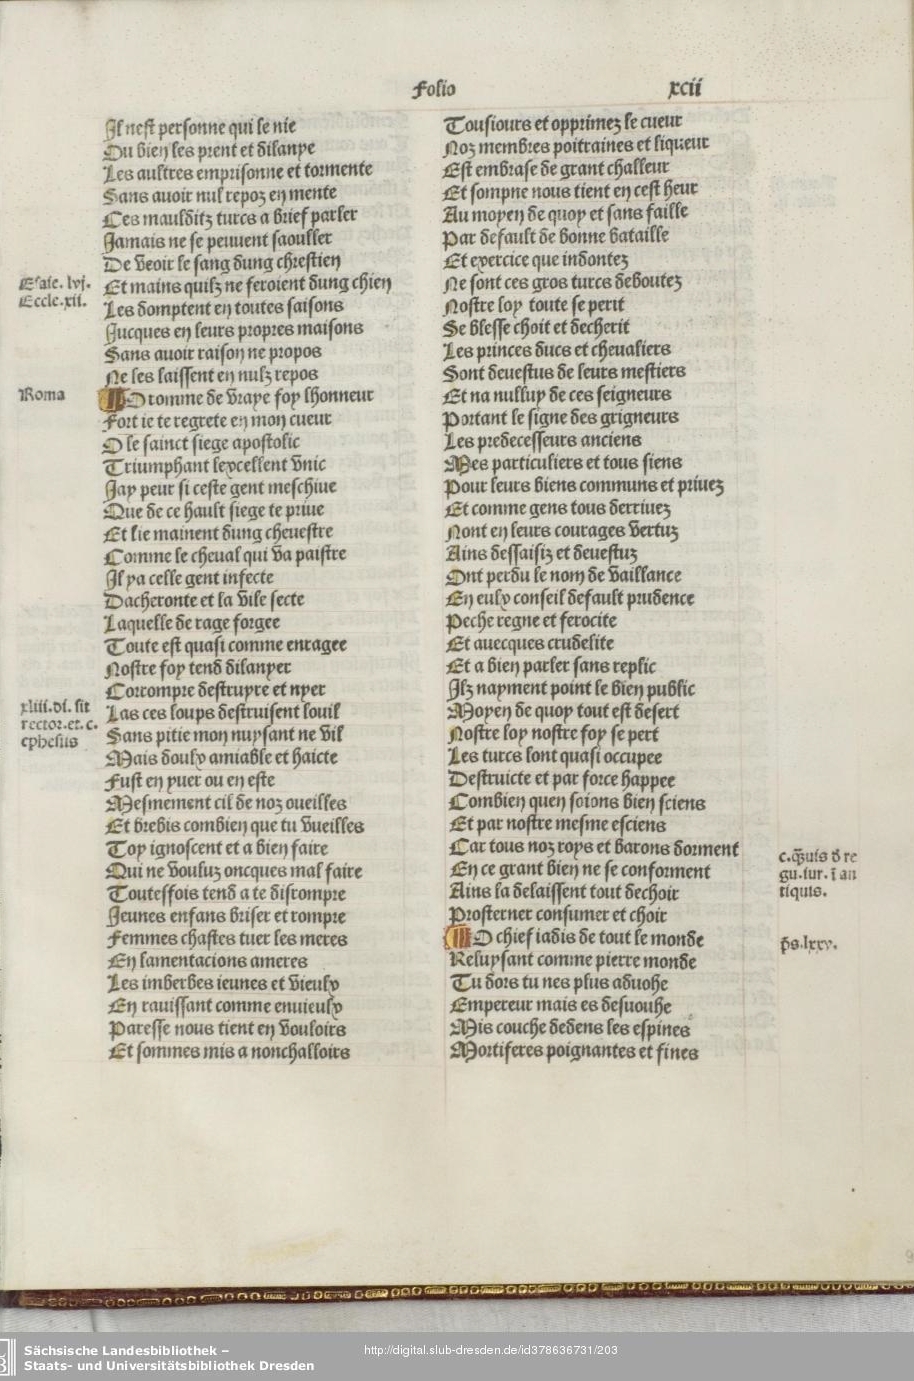 Folio xcii
Il nest personne qui le nie
Ou bien les prent et dilanye
Les aultres emprisonne et tormente
Sans auoir nul repoz en mente
Ces maulditz turcs a brief parler
Jamais ne se peuuent saouller
De veoir le sang dung chrestien
Esaie. lvj.
Et mains quilz ne feroient dung chien
Eccle. xii.
Les domptent en toutes saisons
Jucques en leurs propres maisons
Sans auoir raison ne propos
Ne les laissent en nulz repos
Roma
O romme de vraye foy lhonneur
Fort ie te regrete en mon cueur
O le sainct siege apostolic
Triumphant lexcellent vnic
Jay peur si ceste gent meschiue
Que de ce hault siege te priue
Et lie mainent dung cheuestre
Comme le cheual qui va paistre
Il ya celle gent infecte
Dacheronte et la vile secte
Laquelle de rage forgee
Toute est quasi comme enragee
Nostre foy tend dilanyer
Corrompre destruyre et nyer
xliii. di. sit
Las ces loups destruisent louil
rector. et. c.
Sans pitie mon nuysant ne vil
ephesus
Mais doulx amiable et haicte
Fust en yuer ou en este
Mesmement cil de noz oueilles
Et brebis combien que tu vueilles
Toy ignoscent et a bien faire
Qui ne vouluz oncques mal faire
Toutesfois tend a te disrompre
Jeunes enfans briser et rompre
Femmes chastes tuer les meres
En lamentacions ameres
Les imberbes ieunes et vieulx
En rauissant comme enuieulx
Paresse nous tient en vouloirs
Et sommes mis a nonchalloirs
Tousiours et opprimez le cueur
Noz membres poitraines et liqueur
Est embrase de grant challeur
Et sompne nous tient en cest heur
Au moyen de quoy et sans faille
Par default de bonne bataille
Et exercice que indontez
Ne sont ces gros turcs deboutez
Nostre loy toute se perit
Se blesse choit et decherit
Les princes ducs et cheualiers
Sont deuestus de leurs mestiers
Et na nulluy de ces seigneurs
Portant le signe des grigneurs
Les predecesseurs anciens
Mes particuliers et tous siens
Pour leurs biens communs et priuez
Et comme gens tous derriuez
Nont en leurs courages vertuz
Ains dessaisiz et deuestuz
Ont perdu le nom de vaillance
En eulx conseil default prudence
Peche regne et ferocite
Et auecques crudelite
Et a bien parler sans replic
Ilz nayment point le bien public
Moyen de quoy tout est desert
Nostre loy nostre foy se pert
Les turcs lont quasi occupee
Destruicte et par force happee
Combien quen soions bien sciens
Et par nostre mesme esciens
Car tous noz roys et barons dorment
c. q̃uis d re
En ce grant bien ne se conforment
gu. iur. ĩ an
Ains la delaissent tout dechoir
tiquis.
Prosterner consumer et choir
O chief iadis de tout le monde
p̃s. lxxv.
Reluysant comme pierre monde
Tu dors tu nes plus aduohe
Empereur mais es desuouhe
Mis couche dedens les espines
Mortiferes poignantes et fines
Sächsische Landesbibliothek –
Staats- und Universitätsbibliothek Dresden
http://digital.slub-dresden.de/id378636731/203